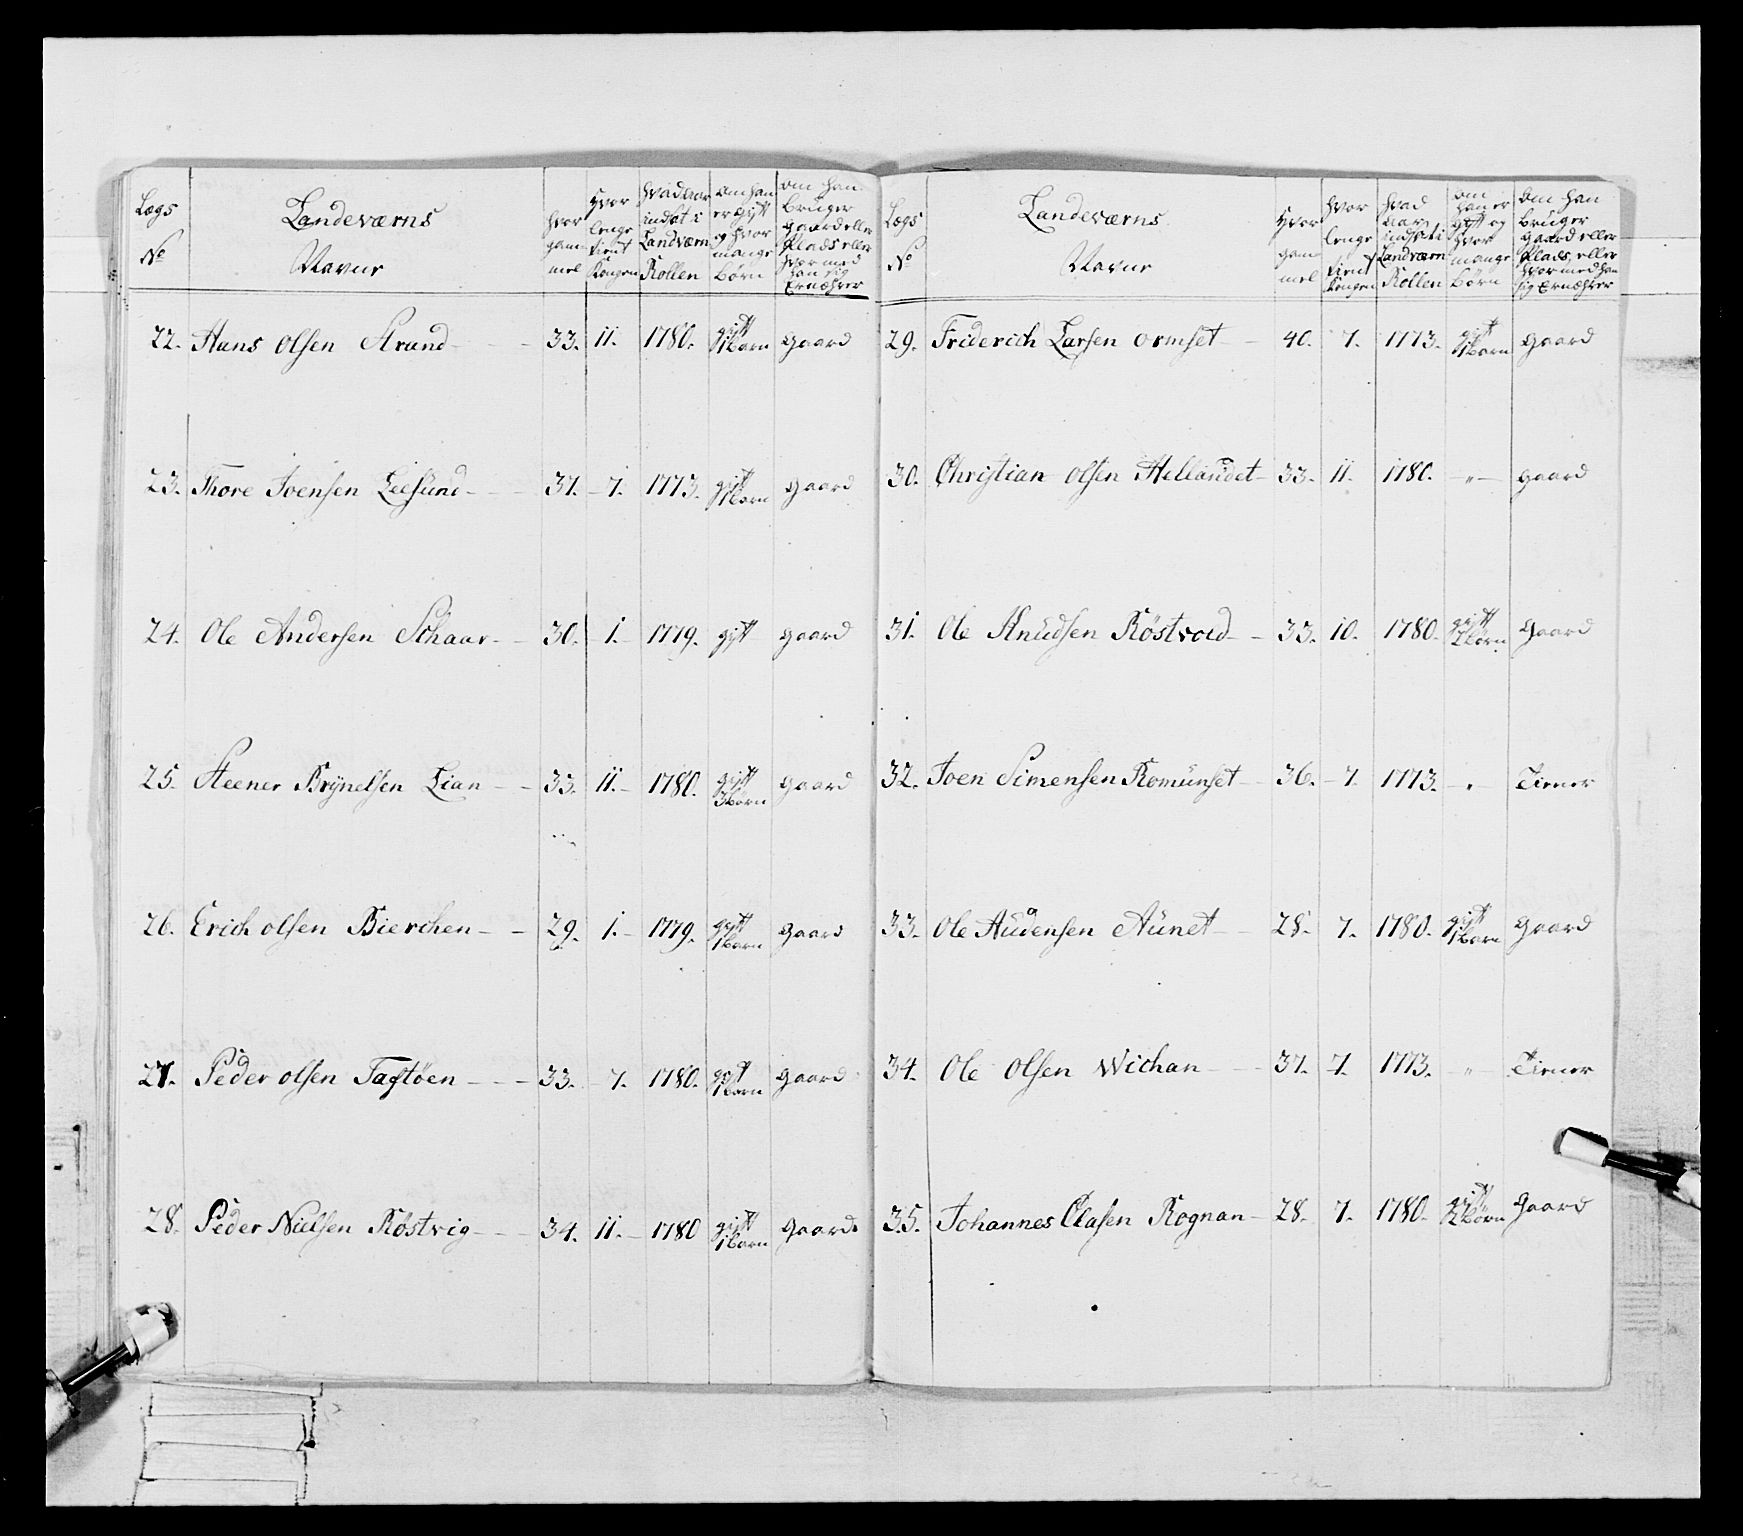 Lægs No
Landeværns Navne
Hvor gammel
Hvor lenge tient Kongen
Hvad Aar indsat i Landværn Rollen
Om han er gift og hvor mange Børn
Om han bruger gaard eller Plads eller hvor med han sig Ernæhrer
22. Hans Olsen Strand - - - 33. 11. 1780. gift 1 Barn gaard
23. Thore Joensen Leesund - - - 37. - 7. 1773. gift 1 Barn gaard
24. Ole Andersen Schaar - - 30. 1. 1779. gift gaard
25. Steener Brynelsen Lian - - 33. 11. - 1780. gift 3 Børn gaard
26. Erich Olsen Bierchen - - 29. 1. - 1779. gift 1 Barn gaard
27. Peder Olsen Tagtøen - - - 33. - 7. 1780. gift 1 Barn gaard
28. Peder Nielsen Røstvig - - - 34. 11. - 1780 gift 1 Barn gaard
Lægs No
Landeværns Navne
Hvor gammel
Hvor lenge tient Kongen
Hvad Aar indsat i Landværn Rollen
Om han er gift og hvor mange Børn
Om han bruger gaard eller Plads, eller hvor med han sig Ernæhrer
29. Friderich Larsen Ormset - - 40. 7. 1773. gift 1 Barn gaard
30. Christian Olsen Hellandet - 33. 11. 1780. - " - gaard
31. Ole Knudsen Röstvold - - 33. 10. 1780. gift 2 Børn gaard
32. Joen Simensen Romünset - 36. - 7. 1773. - " - Tiener
33. Ole Audensen Aünet - - 28. 7. 1780. gift 1 Barn gaard
34. Ole Olsen Wichan - - - 37. 7. 1773. - " - Tiener
35. Johannes Olasen Rognan - 28. 7. 1780. gift 2 Børn gaard